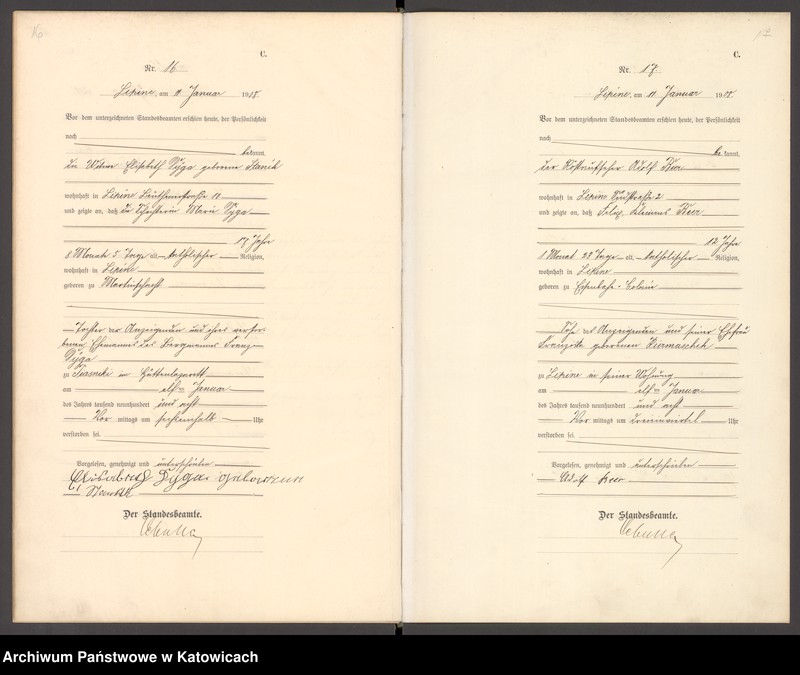 16
C.
Nr. 16
Lipine, am 11 Januar 1908.
Vor dem unterzeichneten Standesbeamten erschien heute, der Persönlichkeit
nach
bekannt,
die Witwe Elisabeth Dyga geborene Stanik
wohnhaft in Lipine 11
und zeigte an, daß die Marie Dyga
17 Jahr
8 Monat 5 Tage alt, katholischer Religion,
wohnhaft in Lipine
geboren zu Martinschacht
Tochter der Anzeigenden und ihres verstor-
benen Ehemannes des Bergmanns Franz
Dyga
zu Piasniki im Hüttenlazarett
am elf Januar
des Jahres tausend neunhundert und acht
Vor mittags um Uhr
verstorben sei.
Vorgelesen, genehmigt und unterschrieben
Elisabeth Dyga geborene
Stanik
Der Standesbeamte.
17
C.
Nr. 17
Lipine, am 11. Januar 1908.
Vor dem unterzeichneten Standesbeamten erschien heute, der Persönlichkeit
nach
be kannt,
der Adolf Keer
wohnhaft in Lipine 2
und zeigte an, daß Felix Klemens Keer
12 Jahr
1 Monat 23 Tage alt, katholischer Religion,
wohnhaft in Lipine
geboren zu
Sohn des Anzeigenden und seiner Ehefrau
Franziska geborenen
zu Lipine in seiner Wohnung
am elf Januar
des Jahres tausend neunhundert und acht
Vor mittags um dreiviertel Uhr
verstorben sei.
Vorgelesen, genehmigt und unterschrieben
Adolf Keer
Der Standesbeamte.
Archiwum Państwowe w Katowicach